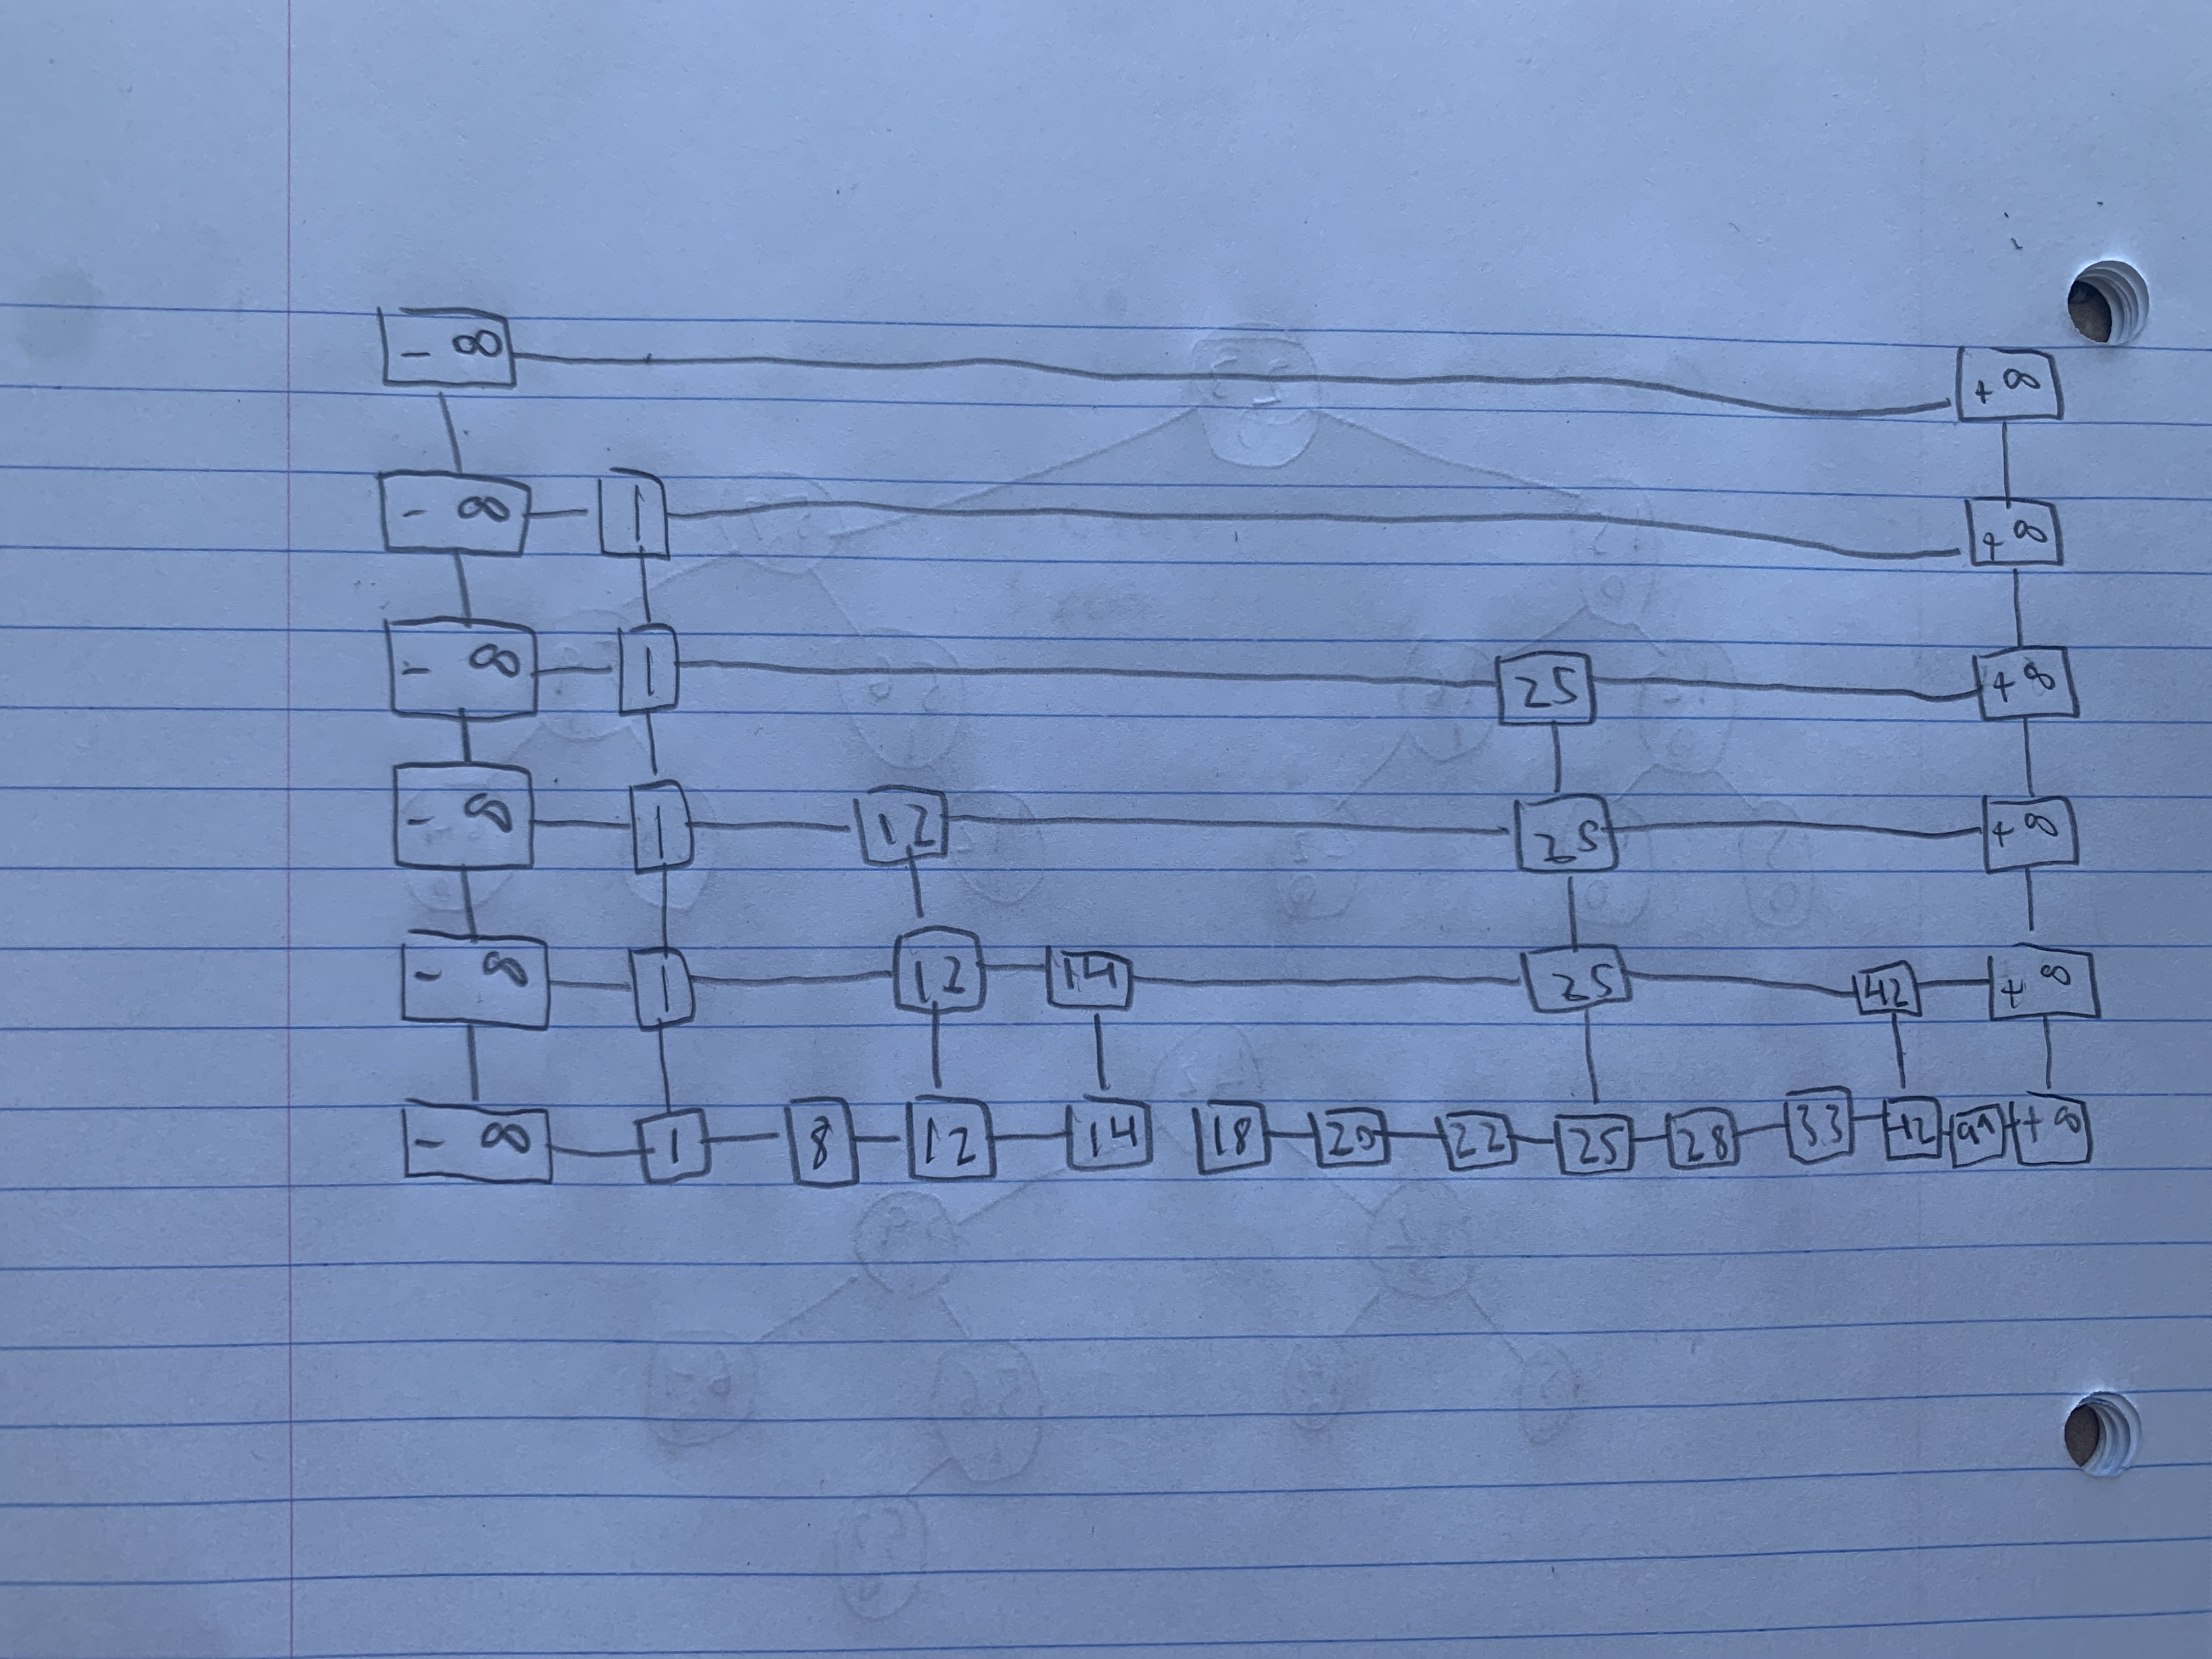 -∞ +∞
-∞ 1 +∞
-∞ 1 25 +∞
-∞ 1 12 25 +∞
-∞ 1 12 14 25 42 +∞
-∞ 1 8 12 14 18 20 22 25 28 33 42 +∞